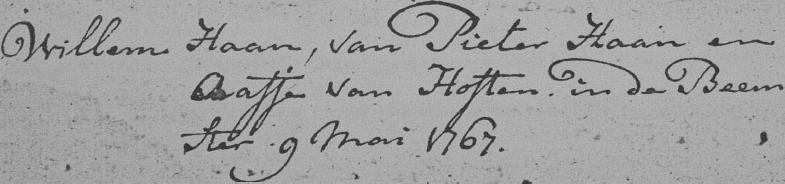 Willem Haan, van Pieter Haan en
Aafje van Hoften. in de Beem
ster 9 Mai 1767.